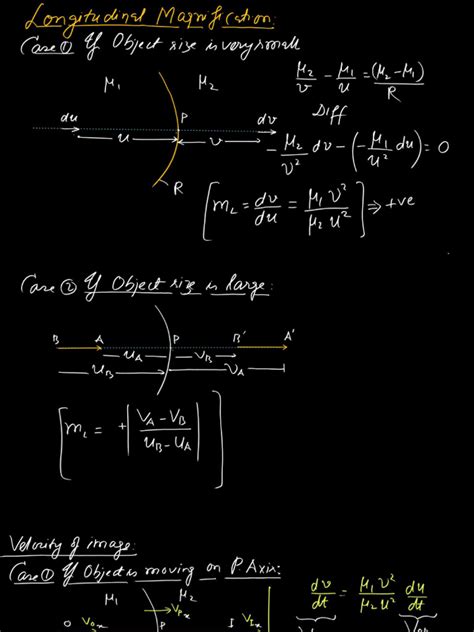 Longitudinal Magnification:
Case ① If Object size is very small
μ₁ μ₂
μ₂/v - μ₁/u = (μ₂-μ₁)/R
Diff
du P dv
u v
-μ₂/v² dv - (-μ₁/u² du) = 0
R
[m_L = dv/du = μ₁v²/μ₂u²] ⇒ +ve
Case ② If Object size is large:
B A P B' A'
u_A v_B
u_B v_A
[m_L = +|(v_A - v_B)/(u_B - u_A)|]
Velocity of image:
Case ① If Object is moving on P.Axis:
μ₁ μ₂
dv/dt = μ₁v²/μ₂u² du/dt
O V_Ox P V_Px I V_Ix